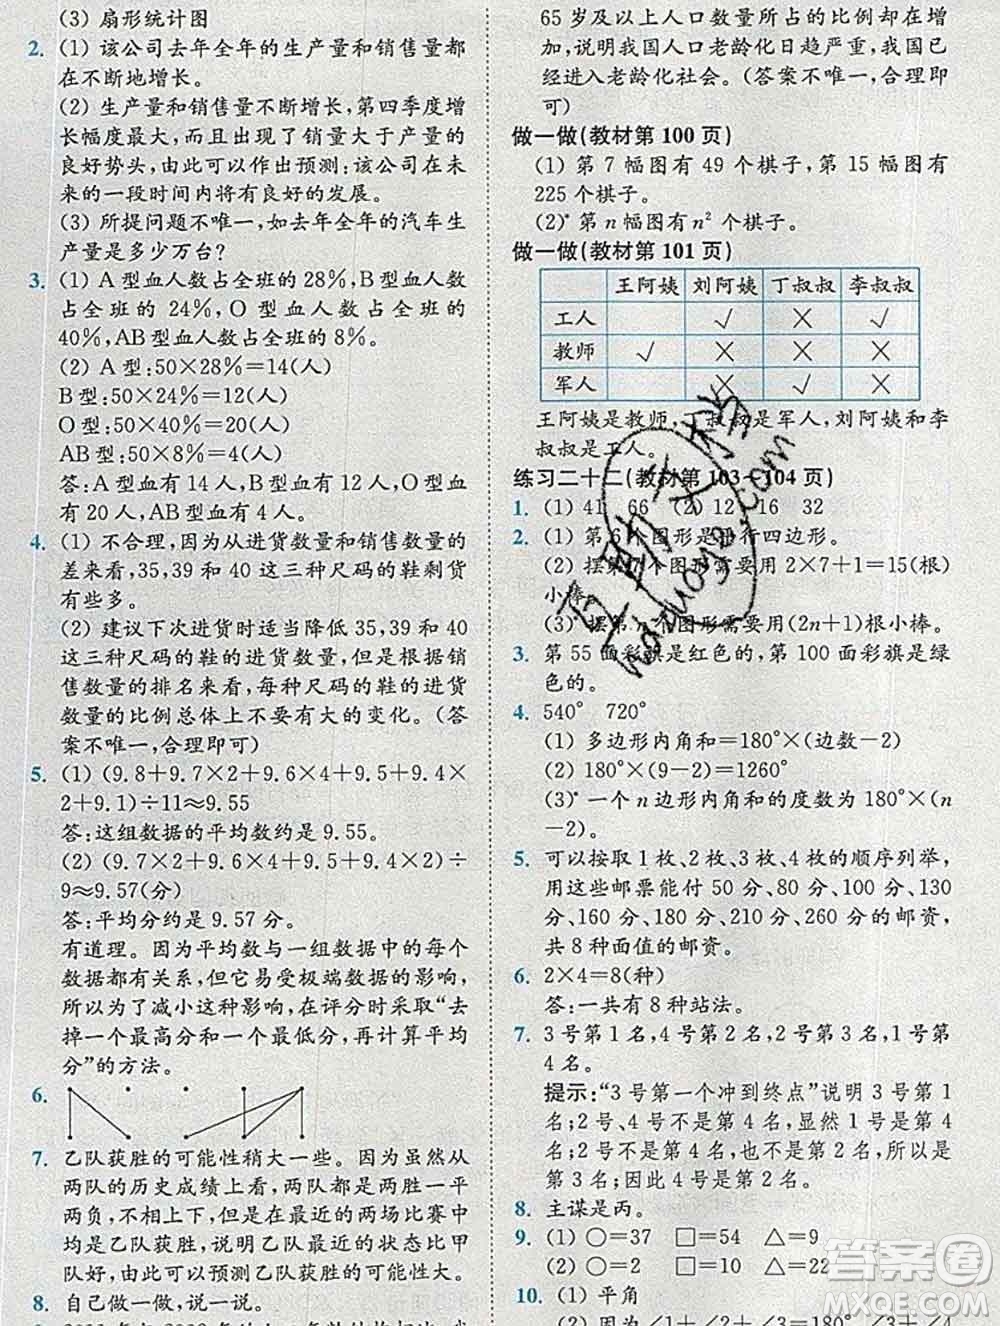 (3) 扇形统计图
2. (1) 该公司去年全年的生产量和销售量都
在不断地增长。
(2) 生产量和销售量不断增长，第四季度增
长幅度最大，而且出现了销量大于产量的
良好势头，由此可以作出预测：该公司在未
来的一段时间内将有良好的发展。
(3) 所提问题不唯一，如去年全年的汽车生
产量是多少万台？
3. (1) A 型血人数占全班的 28％，B 型血人数
占全班的 24％，O 型血人数占全班的
40％，AB 型血人数占全班的 8％。
(2) A 型：50×28％＝14(人)
B 型：50×24％＝12(人)
O 型：50×40％＝20(人)
AB 型：50×8％＝4(人)
答：A 型血有 14 人，B 型血有 12 人，O 型血
有 20 人，AB 型血有 4 人。
4. (1) 不合理，因为从进货数量和销售数量的
差来看，35，39 和 40 这三种尺码的鞋剩货
有些多。
(2) 建议下次进货时适当降低 35，39 和 40
这三种尺码的鞋的进货数量，但是根据销
售数量的排名来看，每种尺码的鞋的进货
数量的比例总体上不要有大的变化。(答
案不唯一，合理即可)
5. (1) (9.8＋9.7×2＋9.6×4＋9.5＋9.4×
2＋9.1)÷11≈9.55
答：这组数据的平均数约是 9.55。
(2) (9.7×2＋9.6×4＋9.5＋9.4×2)÷
9≈9.57(分)
答：平均分约是 9.57 分。
有道理。因为平均数与一组数据中的每个
数据都有关系，但它易受极端数据的影响，
所以为了减小这种影响，在评分时采取“去
掉一个最高分和一个最低分，再计算平均
分”的方法。
6.
7. 乙队获胜的可能性稍大一些。因为虽然从
两队的历史成绩上看，两队都是两胜一平
两负，不相上下，但是在最近的两场比赛中
均是乙队获胜，说明乙队最近的状态比甲
队好，由此可以预测乙队获胜的可能性大。
8. 自己做一做，说一说。
65 岁及以上人口数量所占的比例却在增
加，说明我国人口老龄化日趋严重，我国已
经进入老龄化社会。(答案不唯一，合理即
可)
做一做(教材第 100 页)
(1) 第 7 幅图有 49 个棋子，第 15 幅图有
225 个棋子。
(2)* 第 n 幅图有 n² 个棋子。
做一做(教材第 101 页)
王阿姨 刘阿姨 丁叔叔 李叔叔
工人 √ × √
教师 √ × × ×
军人 × √ ×
王阿姨是教师，丁叔叔是军人，刘阿姨和李
叔叔是工人。
练习二十二(教材第 103－104 页)
1. (1) 41 66 (2) 12 16 32
2. (1) 第 6 个图形是平行四边形。
(2) 摆第 7 个图形需要用 2×7＋1＝15(根)
小棒。
(3)* 摆第 n 个图形需要用(2n＋1)根小棒。
3. 第 55 面彩旗是红色的，第 100 面彩旗是绿
色的。
4. 540° 720°
(1) 多边形内角和＝180°×(边数－2)
(2) 180°×(9－2)＝1260°
(3)* 一个 n 边形内角和的度数为 180°×(n
－2)。
5. 可以按取 1 枚、2 枚、3 枚、4 枚的顺序列举，
用这些邮票能付 50 分、80 分、100 分、130
分、160 分、180 分、210 分、260 分的邮资，
共 8 种面值的邮资。
6. 2×4＝8(种)
答：一共有 8 种站法。
7. 3 号第 1 名，4 号第 2 名，2 号第 3 名，1 号第
4 名。
提示：“3 号第一个冲到终点”说明 3 号第 1
名；2 号、4 号不是第 4 名，显然 1 号是第 4
名；2 号不是第 4 名，也不是第 2 名，则是第
3 名；因此 4 号是第 2 名。
8. 主谋是丙。
9. (1) ○＝37 □＝54 △＝9
(2) ○＝2 □＝10 △＝22
10. (1) 平角
(2) 因为∠1＋∠2＋∠3＋∠4
百助文档
hdzuoye.com
答案圈
MXQE.COM